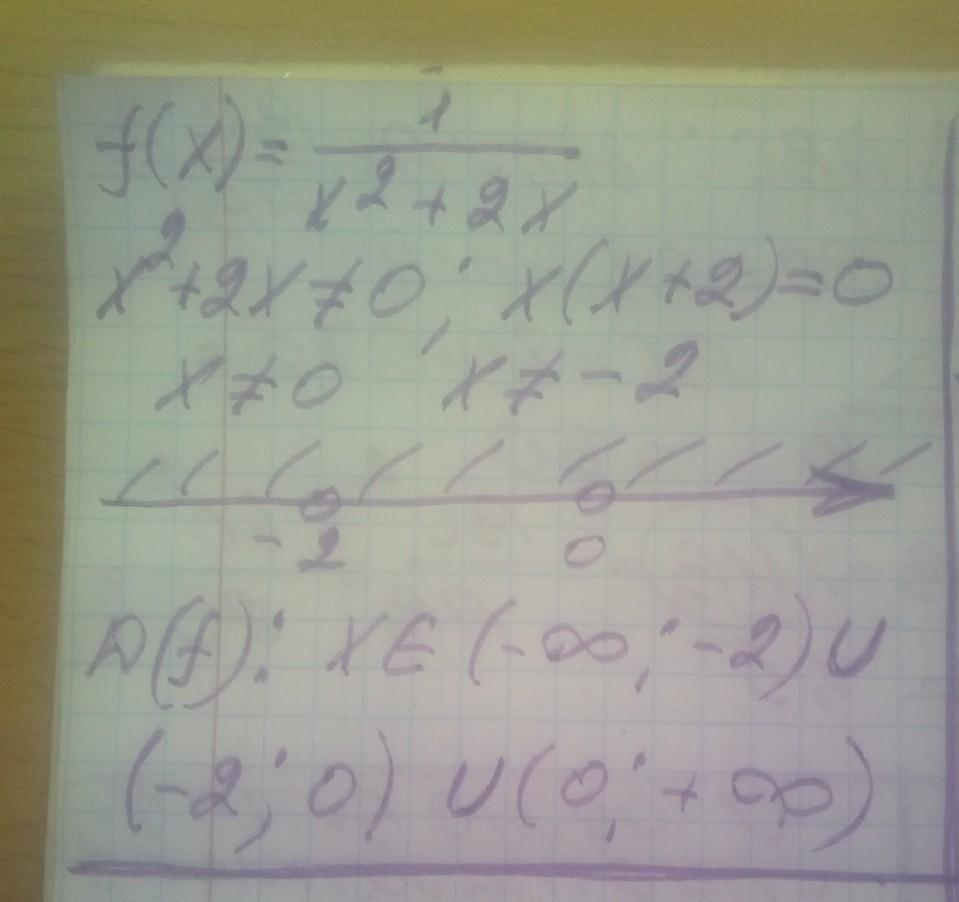 f(x) = 1/(x² + 2x)
x² + 2x ≠ 0; x(x+2) = 0
x ≠ 0 x ≠ -2
-2 0
D(f): x ∈ (-∞; -2) ∪
(-2; 0) ∪ (0; +∞)